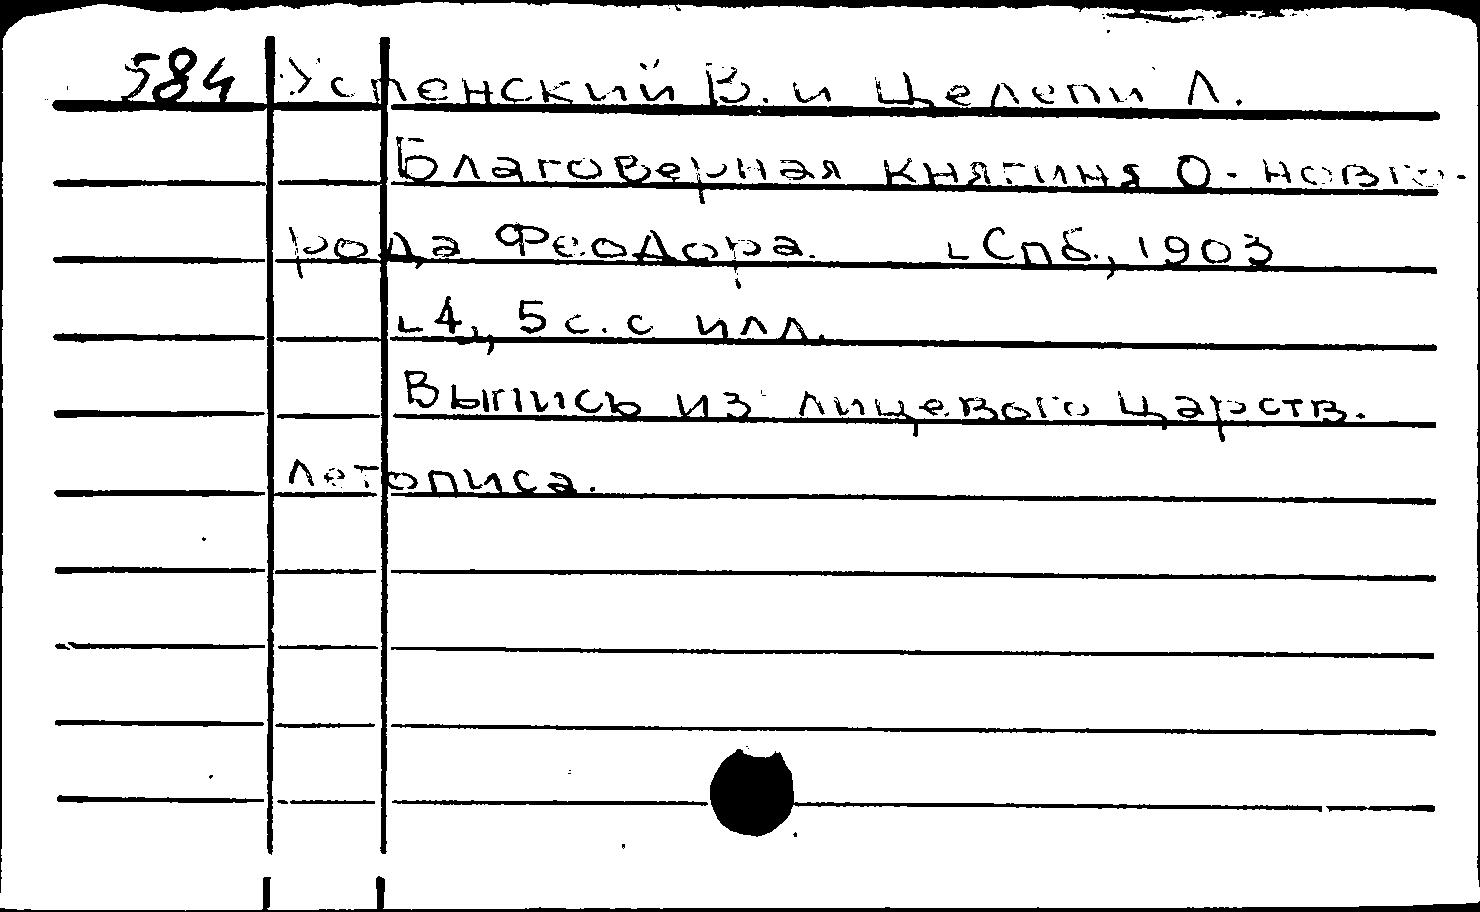 584 Успенский В. и Целепи Л.
Благоверная княгиня О. Новго-
рода Феодора. Спб., 1903
4, 5 с. с илл.
Выпись из лицевого Царств.
летописа.